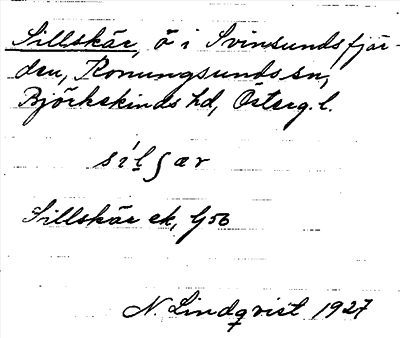 Sillskär, ö i Svinsundsfjär-
den, Konungsunds sn,
Björkekinds hd, Österg. l.
sílʃær
Sillskär ek, G50
N. Lindqvist 1927